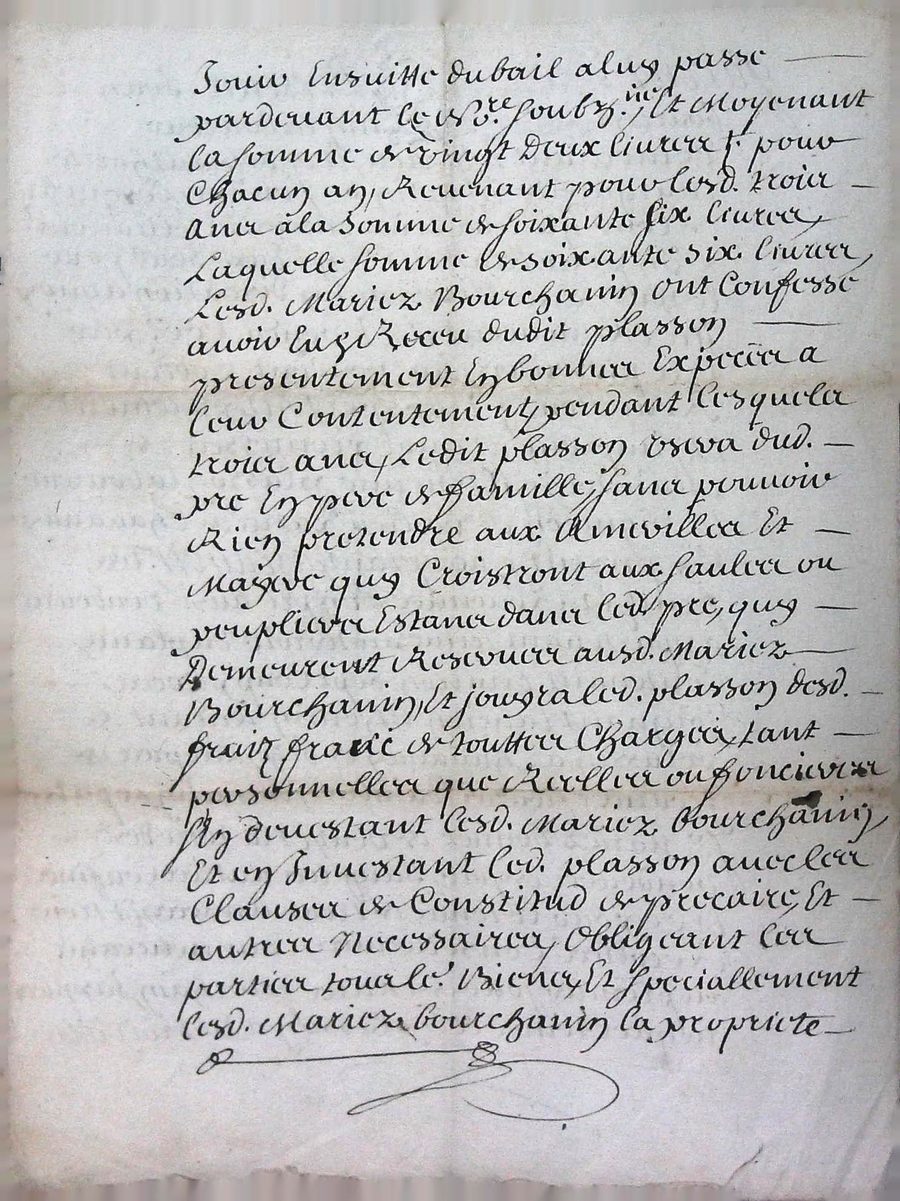 Jouir Ensuitte du bail a luy passe
pardevant le No.re soubz.ne, Et Moyenant
la somme de vingt Deux livres t. pour
Chacun an, Revenant pour lesd. trois
ans a la Somme de soixante six livres,
Laquelle somme de soixante six livres,
Lesd. Mariez Bourchanin ont Confessé
avoir Euz Receu dudit plasson
presentement En bonnes Especes a
leur Contentement, pendant lesquels
trois ans, Ledit plasson usera dud.
pre En pere de famille, sans pouvoir
Rien pretendre aux Ameilles Et
Mayere quy Croistront aux saules ou
peupliers Estans dans led. pre, quy
Demeurent Reservés ausd. Mariez
Bourchanin, Et jouyra led. plasson desd.
fruiz franc de touttes Charges, tant
personnelles que Reelles ou foncieres
S'en devestant lesd. Mariez bourchanin,
Et en Investant led. plasson avec les
Clauses de Constitud de precaire, Et
autres Necessaires, Obligeant les
parties tous le.s Biens, Et speciallement
lesd. Mariez bourchanin la propriete